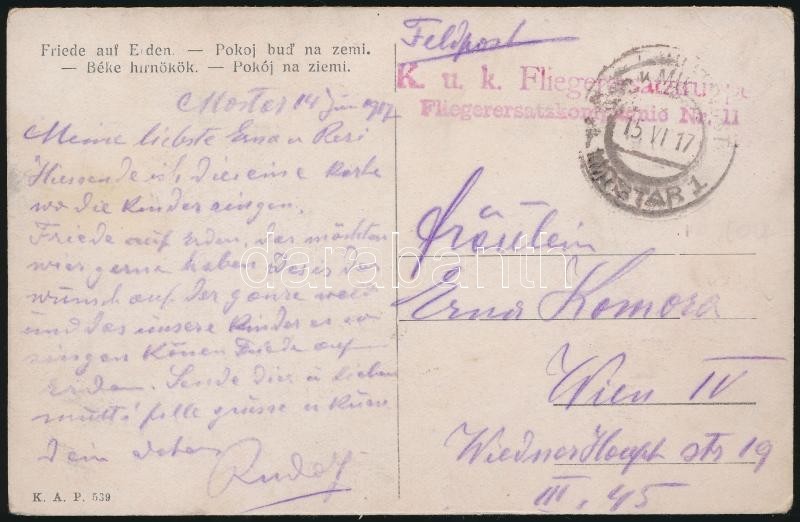 Friede auf Erden. — Pokoj buď na zemi.
— Béke hirnökök. — Pokój na ziemi.
Mostar 14 Juni 1917
Meine liebste Erna u Resi
sende ich dir eine Karte
wo die Kinder singen.
Friede auf Erden, das möchten
wier gerne haben
wunsch auf der ganze welt
und das unsere Kinder
singen Könen Friede auf
Erden. Sende dir u lieben
mutti fille grüsse u Küsse
Dein
Rudolf
K. A. P. 539
Feldpost
K. u. k. Fliegerersatztruppe
Fliegerersatzkompagnie Nr. 11
15 VI 17
MOSTAR 1
Fräulein
Erna Komora
Wien IV
Wiedner Haupt str 19
III. 45
darabanth